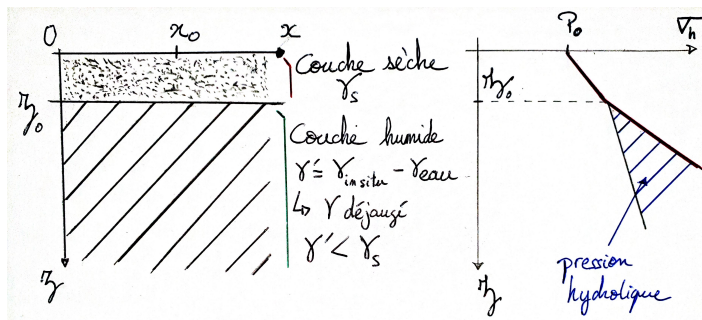 O
x₀
x
z₀
z
Couche sèche
γs
Couche humide
γ' = γin situ - γeau
↳ γ déjaugé
γ' < γs
P₀
σh
z₀
z
pression
hydrolique